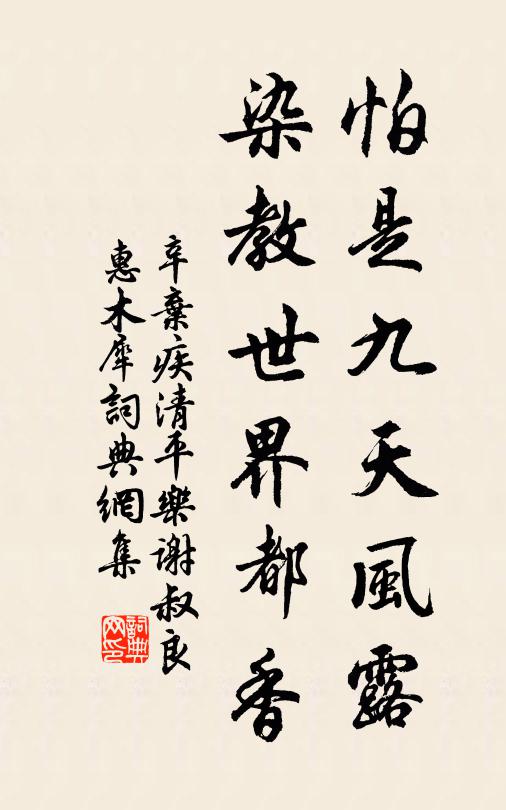 怕是九天風露
染教世界都香
辛棄疾清平樂謝叔良
惠木犀詞典網集
詞典
网印